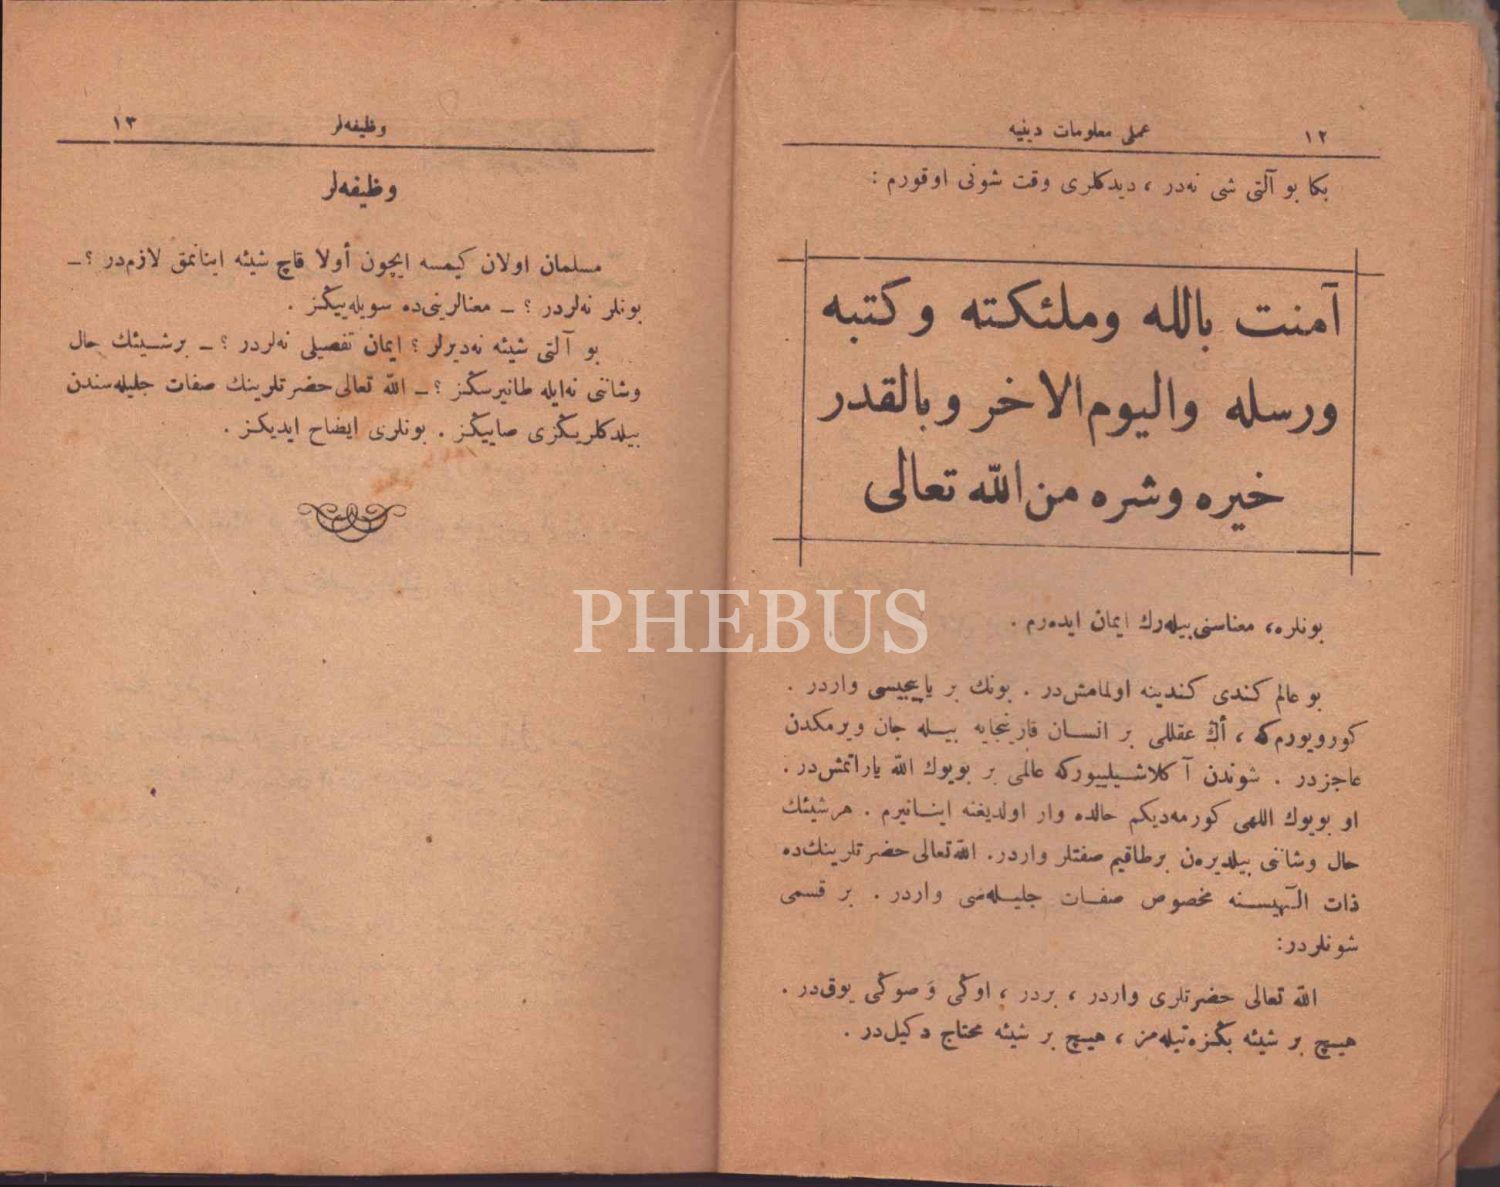 ١٢
عملی معلومات دینیه
بکا بو آلتی شی نه‌در ، دیدکلری وقت شونی اوقورم :
آمنت بالله وملئکته وکتبه
ورسله والیوم الاخر وبالقدر
خیره وشره من الله تعالی
بونلره، معناسنی بیله‌رك ایمان ایده‌رم .
بو عالم کندی کندینه اولمامش‌در . بونك بر یاپیجیسی واردر .
کورویورم‌که ، أڭ عقللی بر انسان قارینجایه بیله جان ویرمکدن
عاجزدر . شوندن آکلاشیلییورکه عالمی بر بویوك الله یاراتمش‌در .
او بویوك اللهی کورمه‌دیکم حالده وار اولدیغنه اینانیرم . هر شیئك
حال وشاننی بیلدیره‌ن برطاقیم صفتلر واردر. الله تعالی حضرتلرینك‌ده
ذات الٓهیسنه مخصوص صفات جلیله‌سی واردر . بر قسمی
شونلردر:
الله تعالی حضرتلری واردر ، بردر ، اوڭی وَ صوڭی یوق‌در .
هیچ بر شیئه بڭزه‌تیله‌مز ، هیچ بر شیئه محتاج دکیل‌در .
وظیفه‌لر
١٣
وظیفه‌لر
مسلمان اولان کیمسه ایچون أولا قاچ شیئه اینانمق لازم‌در ؟ ـ
بونلر نه‌لردر ؟ ـ معنالرینی‌ده سویله‌ییڭز .
بو آلتی شیئه نه‌دیرلر ؟ ایمان تفصیلی نه‌لردر ؟ ـ برشیئك حال
وشاننی نه‌ایله طانیرسڭز ؟ ـ الله تعالی حضرتلرینك صفات جلیله‌سندن
بیلدکلریڭزی صاییڭز . بونلری ایضاح ایدیکز .
PHEBUS